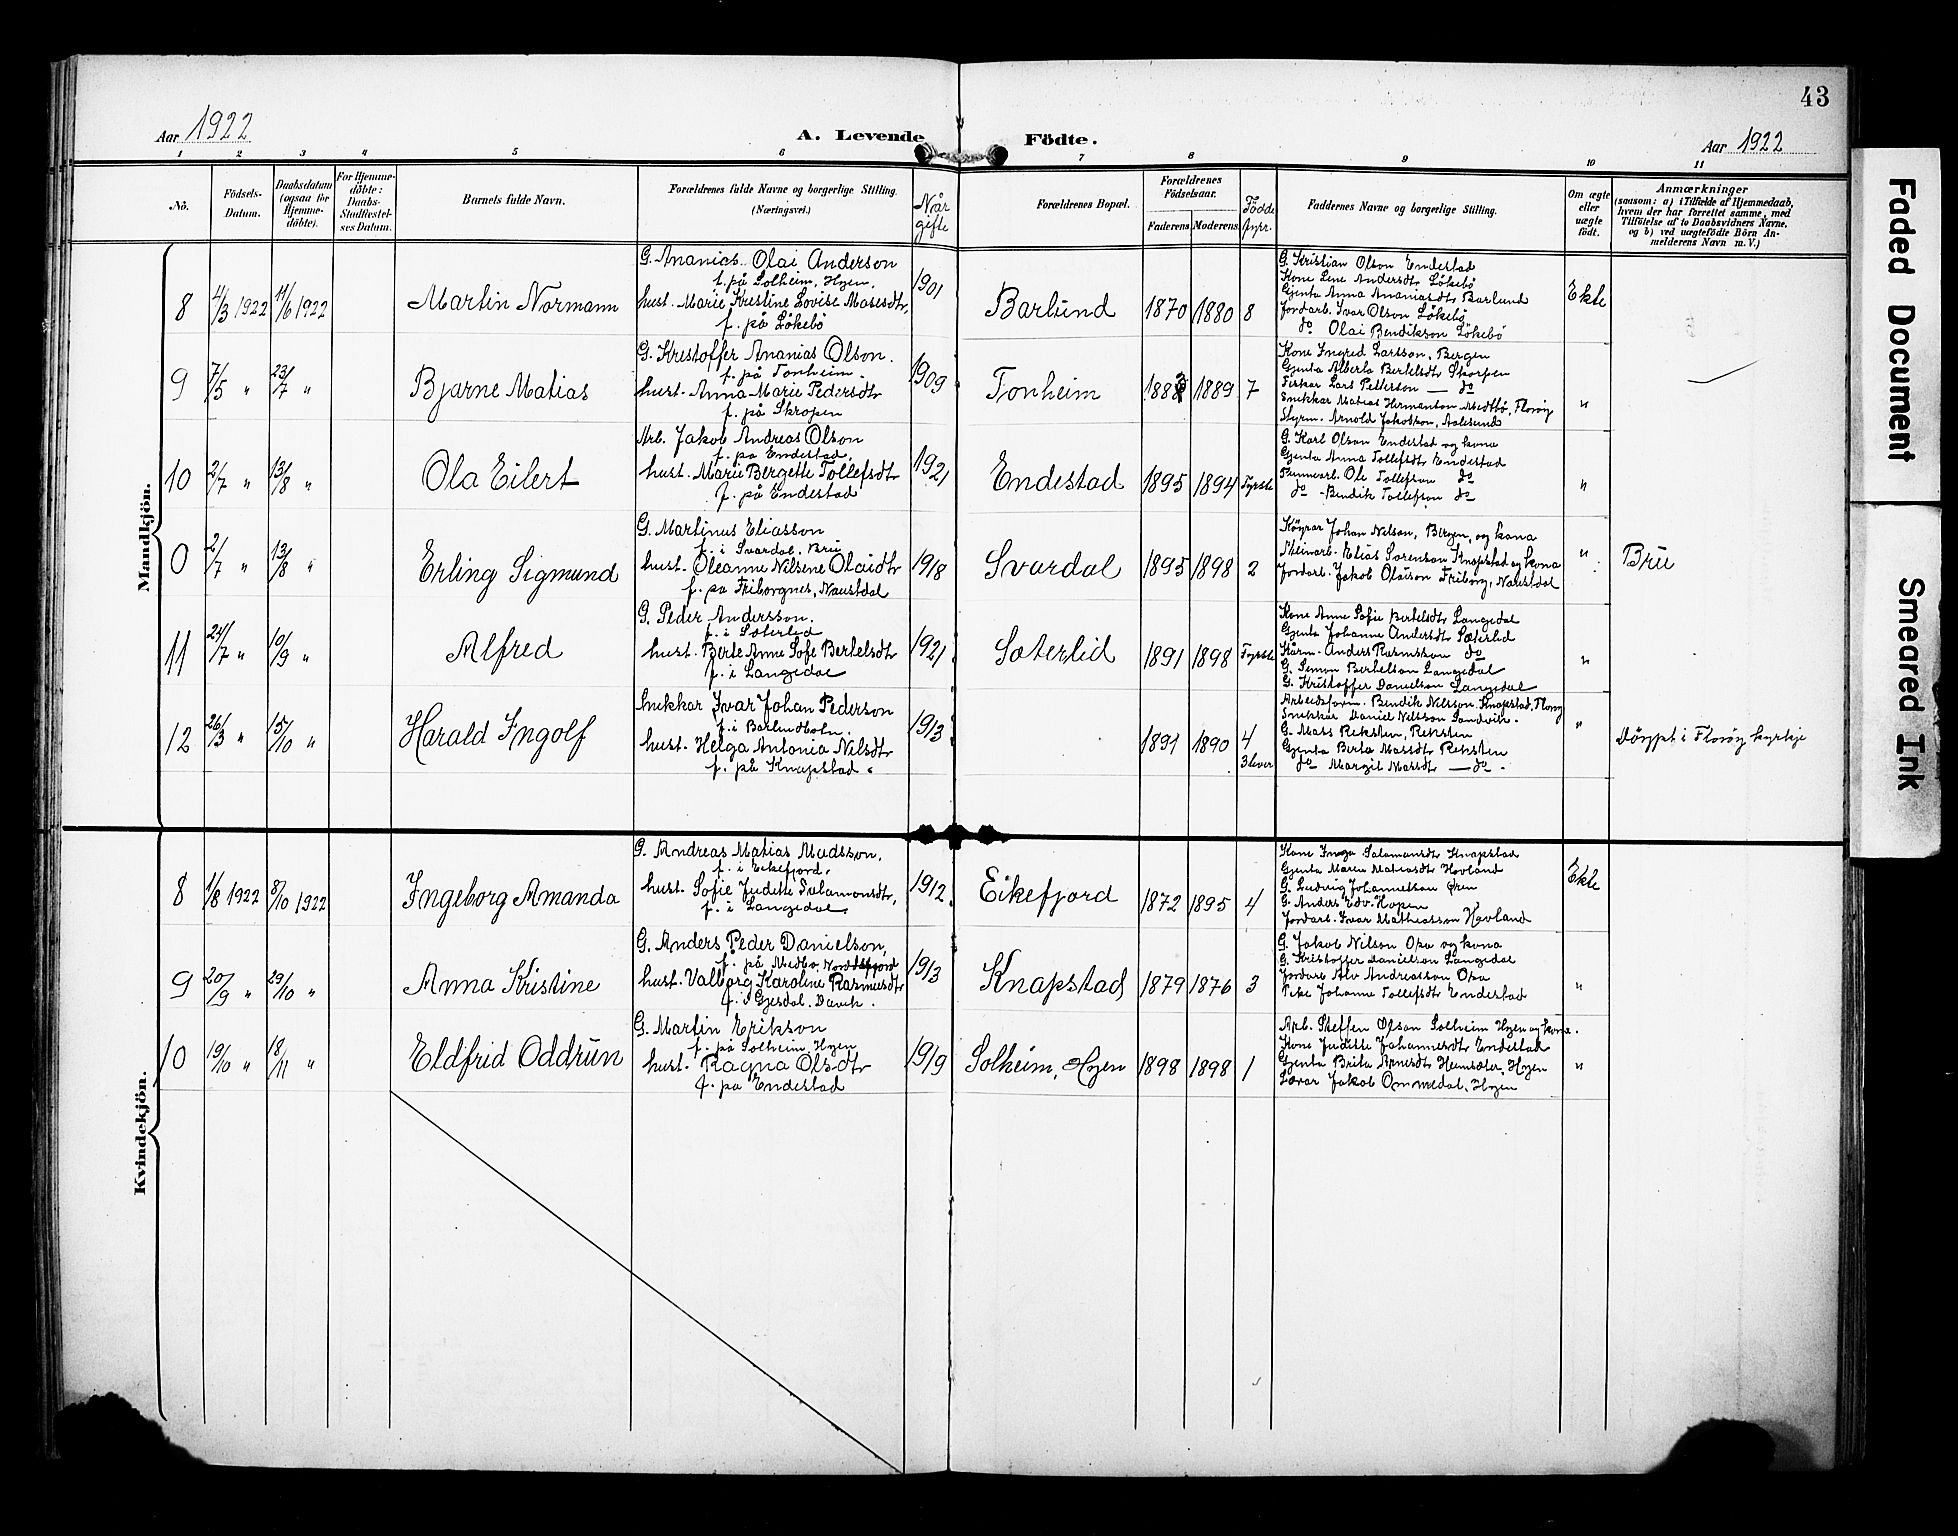 43
Aar 1922
A. Levende Födte.
Aar 1922
1 2 3 4 5 6 7 8 9 10 11
Nö.
Födsels-Datum.
Daabsdatum (ogsaa for Hjemme-döbte).
For Hjemme-döbte: Daabs-Stadfæstel-ses Datum.
Barnets fulde Navn.
Forældrenes fulde Navne og borgerlige Stilling. (Næringsvei.)
Når gifte
Forældrenes Bopæl.
Forældrenes Födselsaar.
Faderens Moderens
Födde
Faddernes Navne og borgerlige Stilling.
Om ægte eller uægte födt.
Anmærkninger
(saasom: a) i Tilfælde af Hjemmedaab,
hvem der har forrettet samme, med
Tilföielse af to Daabsvidners Navne,
og b) ved uægtefödte Börn An-
melderens Navn m. V.)
Mandkjön.
8 4/3 1922 11/6 1922 Martin Normann
G. Ananias Olai Anderson
f. på Solheim, Hyen.
hust. Marie Kristine Lovise Masesdtr,
f. på Lökebö
1901 Barlund 1870 1880 8
G. Kristian Olson Endestad
Kone Lene Andersdtr Lökebö
Gjenta Anna Ananiasdtr Barlund
Jordarb. Ivar Olson Lökebö
do Olai Bendikson Lökebö
Ekte
9 7/5 " 23/7 " Bjarne Matias
G. Kristoffer Ananias Olson.
f. på Tonheim.
hust. Anna Marie Pedersdtr
f. på Skropen
1909 Tonheim 1883 1889 7
Kone Ingred Larsson, Bergen
Gjenta Alberta Bertelsdtr Skorpen
Fiskar Lars Petterson — do
Snekkar Matias Hermanson Medbö, Floröy
Styrm. Arnold Jakobson, Aalesund
"
10 2/7 " 13/8 " Ola Eilert
Arb. Jakob Andreas Olson
f. på Endestad.
hust. Marie Bergette Tollefsdtr
f. på Endestad
1921 Endestad 1895 1894 Fyrste
G. Karl Olson Endestad og kona
Gjenta Anna Tollefsdtr Endestad
Ole Tollefson do
do - Bendik Tollefson do
"
0 2/7 " 13/8 " Erling Sigmund
G. Martinus Eliasson
f. i Svardal, Bru
hust. Oleanne Nilsene Olaidtr
f. på Friborgnes, Naustdal
1918 Svardal 1895 1898 2
Köyrar Johan Nilson, Bergen, og kona
Elias Sorenson Knapstad og kona
Jordarb. Jakob Olaison Friborg, Naustdal
" Bru
11 24/7 " 10/9 " Alfred
G. Peder Andersson.
f. i Sæterlid
hust. Berte Anne Sofe Bertelsdtr
f. i Langedal
1921 Sæterlid 1891 1898 Fyrste
Kone Anne Sofie Bertelsdtr Langedal
Gjenta Johanne Andersdtr Sæterlid
Kårm. Anders Rasmsson do
G. Simon Bertelson Langedal
G. Kristoffer Danielson Langedal
"
12 26/3 " 15/10 " Harald Ingolf
Snekkar Ivar Johan Pederson
f. i Barlindbotn.
hust. Helga Antonia Nilsdtr
f. på Knapstad.
1913 1891 1890 4 3 lever
Arbeidsform. Bendik Nilsson Knapstad, Floröy
Snekkar Daniel Nilsson Sandvik.
G. Mass Reksten, Reksten
Gjenta Berta Massdtr Reksten
do Margit Massdtr — do.
" döypt i Floröy kyrkje
Kvindekjön.
8 1/8 1922 8/10 1922 Ingeborg Amanda
G. Andreas Matias Madsson,
f. i Eikefjord.
hust. Sofie Juditte Salamonsdtr,
f. i Langedal.
1912 Eikefjord 1872 1895 4
Kone Inga Salamonsdtr Knapstad
Gjenta Maren Matiasdtr Hovland
G. Ludvig Johannesson Øren
G. Anders Edv. Hopen
Jordarb. Ivar Mathiasson Hovland
Ekte
9 20/9 " 29/10 " Anna Kristine
G. Anders Peder Danielson,
f. på Medbø, Nordalsfjord
hust. Valborg Karoline Rasmusdtr
f. i Gjesdal, Davik.
1913 Knapstad 1879 1876 3
G. Jakob Nilson Osa og kona
G. Kristoffer Danielson Langedal
Jordarb. Alv Andreasson Osa
Johanne Tollefsdtr Endestad
"
10 19/10 " 18/11 " Eldfrid Oddrun
G. Martin Erikson
f. på Solheim Hyen
hust. Ragna Olsdtr
f. på Endestad
1919 Solheim, Hyen 1898 1898 1
Arb. Steffen Olson Solheim Hyen og kona.
Kone Juditte Johannesdtr Endestad
Gjenta Brita Arnesdtr Heimsæter, Hyen
Lærar Jakob Ommedal, Hyen
"
Faded Document
Smeared Ink